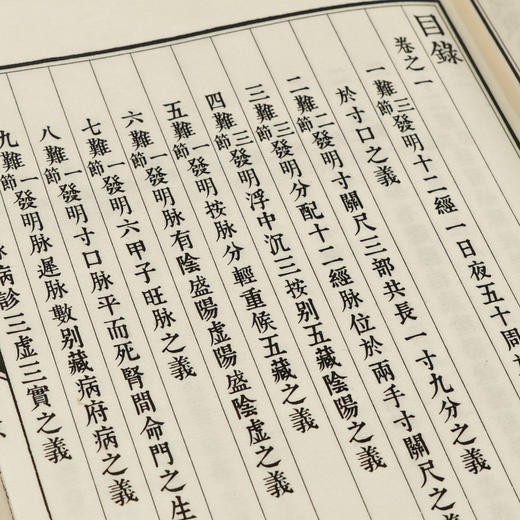 目錄
卷之一
一難三節發明十二經一日夜五十周
於寸口之義
二難二節發明寸關尺三部共長一寸九分之義
三難三節發明分配十二經脉位於兩手寸關尺之義
四難三節發明浮中沉三按别五藏陰陽之義
五難一節發明按脉分輕重候五藏之義
六難一節發明脉有陰盛陽虛陽盛陰虛之義
七難一節發明六甲子旺脉之義
八難一節發明寸口脉平而死腎間命門之生
九難一節發明脉遲脉數别藏病府病之義
病診三虛三實之義